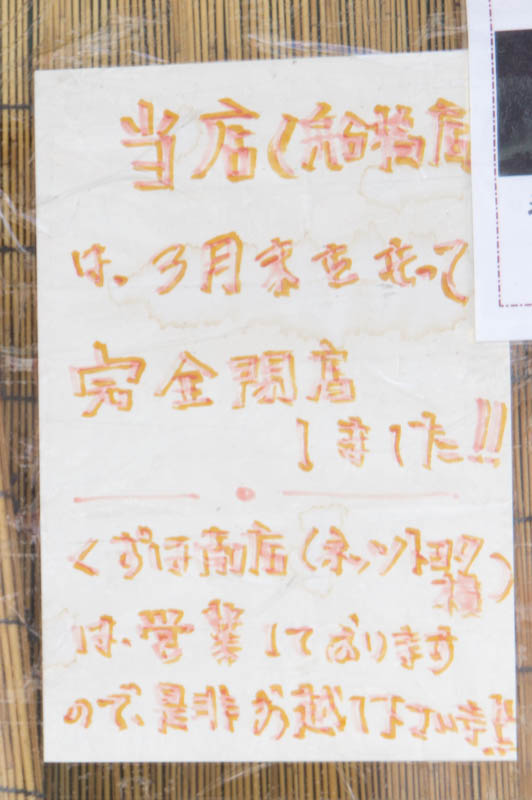 当店(船橋店
は、3月末をもって
完全閉店
しました!!
くずは南店(ネッツトヨタ
横)
は、営業しております
ので、是非お越し下さいませ!!